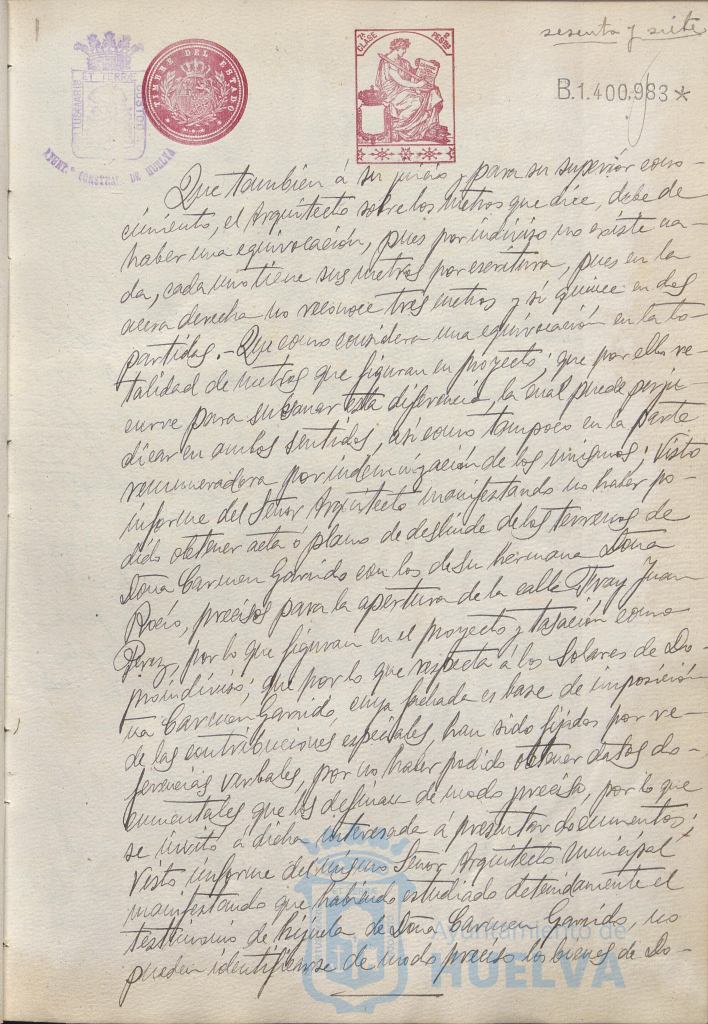 sesenta y siete
7ª CLASE
PESETAS
TIMBRE DEL ESTADO
B.1.400,983 *
AYUNT.º CONSTITAL. DE HUELVA
Que tambien á su juicio y para su superior cono-
cimiento, el Arquitecto sobre los metros que dice, debe de
haber una equivocación, pues por indiviso no existe na-
da, cada uno tiene sus metros por escritura, pues en la
acera derecha no reconoce tres metros y si quince en dos
partidas.- Que como considera una equivocación en la to-
talidad de metros que figuran en proyecto; que por ello re-
curre para subsanar esta diferencia, la cual puede perju-
dicar en ambos sentidos, asi como tampoco en la parte
remuneradora por indemnización de los mismos: Visto
informe del Señor Arquitecto manifestando no haber po-
dido obtener acta ó plano de deslinde de los terrenos de
Doña Carmen Garrido con los de su hermana Doña
Rocio, precisos para la apertura de la calle Fray Juan
Perez, por lo que figuran en el proyecto y tasación como
proindiviso; que por lo que respecta á los Solares de Do-
ña Carmen Garrido, cuya fachada es base de imposición
de las contribuciones especiales, han sido fijados por re-
ferencias verbales, por no haber podido obtener datos do-
cumentales que los definan de modo preciso, por lo que
se invitó á dicha interesada á presentar documentos:
Visto informe del mismo Señor Arquitecto Municipal
manifestando que habiendo estudiado detenidamente el
testimonio de hijuela de Doña Carmen Garrido, no
pueden identificarse de modo preciso los bienes de Do-
Ayuntamiento de
HUELVA